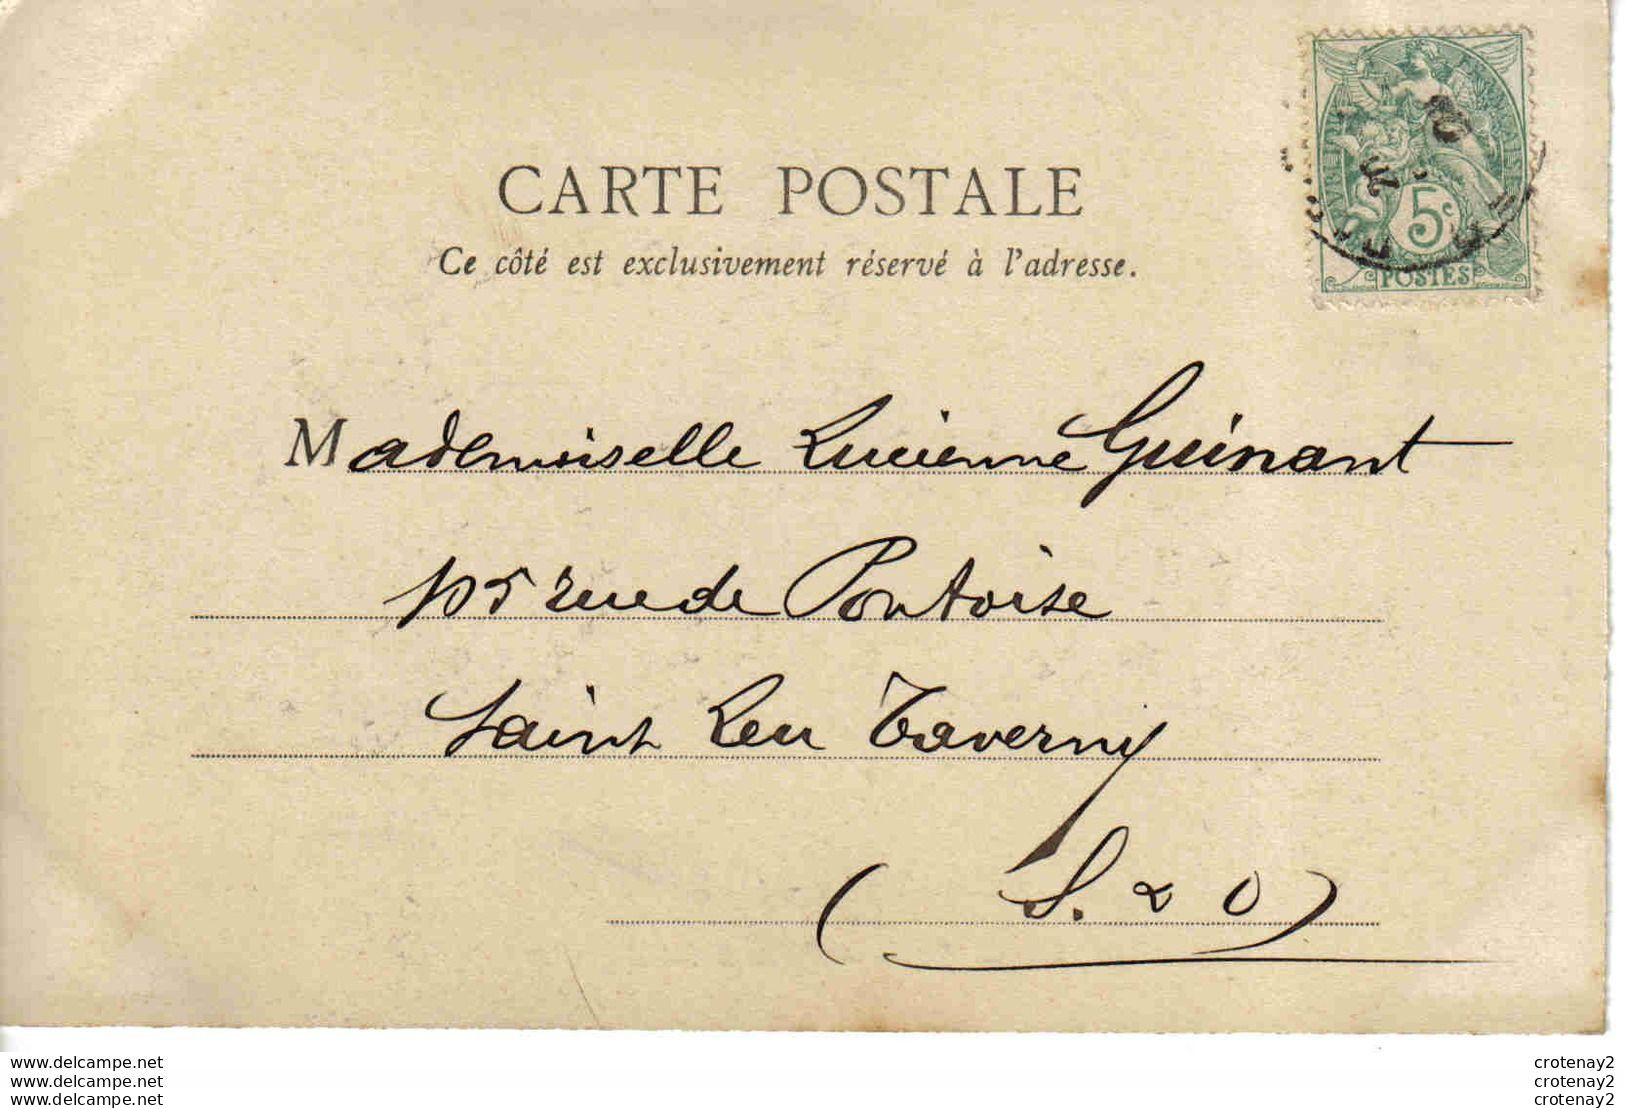 CARTE POSTALE
Ce côté est exclusivement réservé à l'adresse.
5c
POSTES
Mademoiselle Lucienne Guinant
105 rue de Pontoise
Saint Leu Taverny
(S. & O)
www.delcampe.net
www.delcampe.net
www.delcampe.net
crotenay2
crotenay2
crotenay2